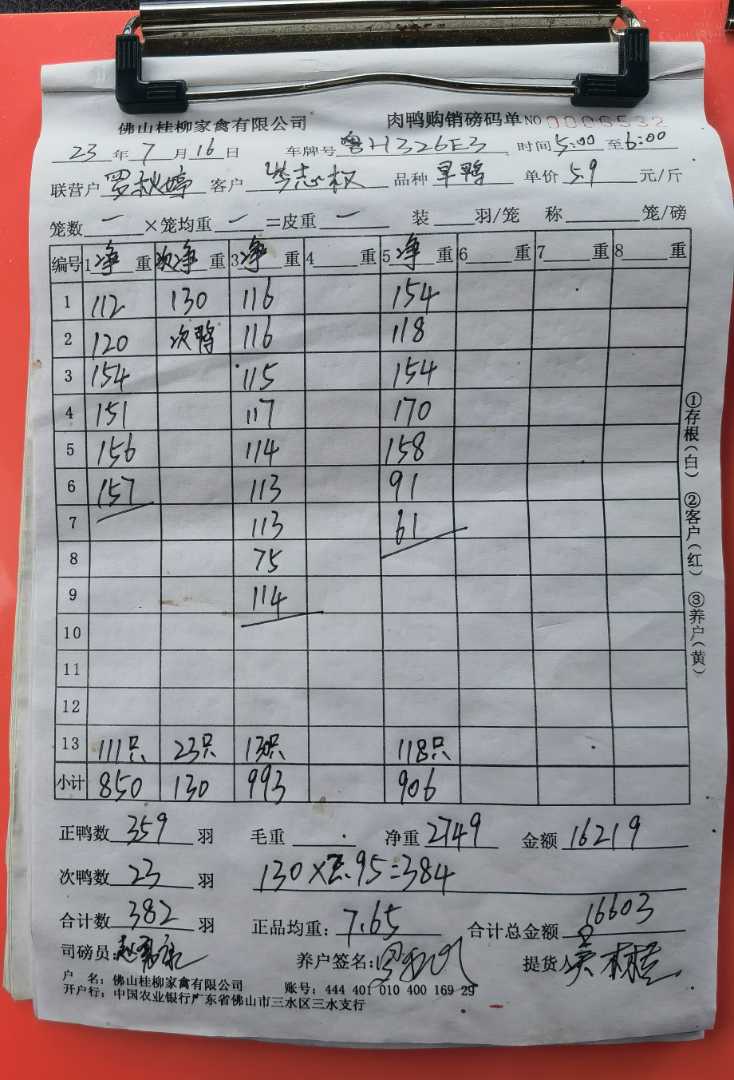 佛山桂柳家禽有限公司 肉鸭购销磅码单 NO 0006532
23 年 7 月 16 日 车牌号 粤H326E3 时间 5:00 至 6:00
联营户 罗秋婷 客户 岑志权 品种 旱鸭 单价 5.9 元/斤
笼数 一 ×笼均重 一 =皮重 一 装 羽/笼 称 笼/磅
编号 1 净 重 次净 重 3 净 重 4 重 5 净 重 6 重 7 重 8 重
1 112 130 116 154
2 120 次鸭 116 118
3 154 115 154
4 151 117 170
5 156 114 158
6 157 113 91
7 113 61
8 75
9 114
10
11
12
13 111只 23只 130只 118只
小计 850 130 993 906
正鸭数 359 羽 毛重 净重 2749 金额 16219
次鸭数 23 羽 130×2.95=384
合计数 382 羽 正品均重: 7.65 合计总金额 16603
司磅员: 养户签名: 提货人
户 名: 佛山桂柳家禽有限公司 账号: 444 401 010 400 169 29
开户行: 中国农业银行广东省佛山市三水区三水支行
①存根(白) ②客户(红) ③养户(黄)